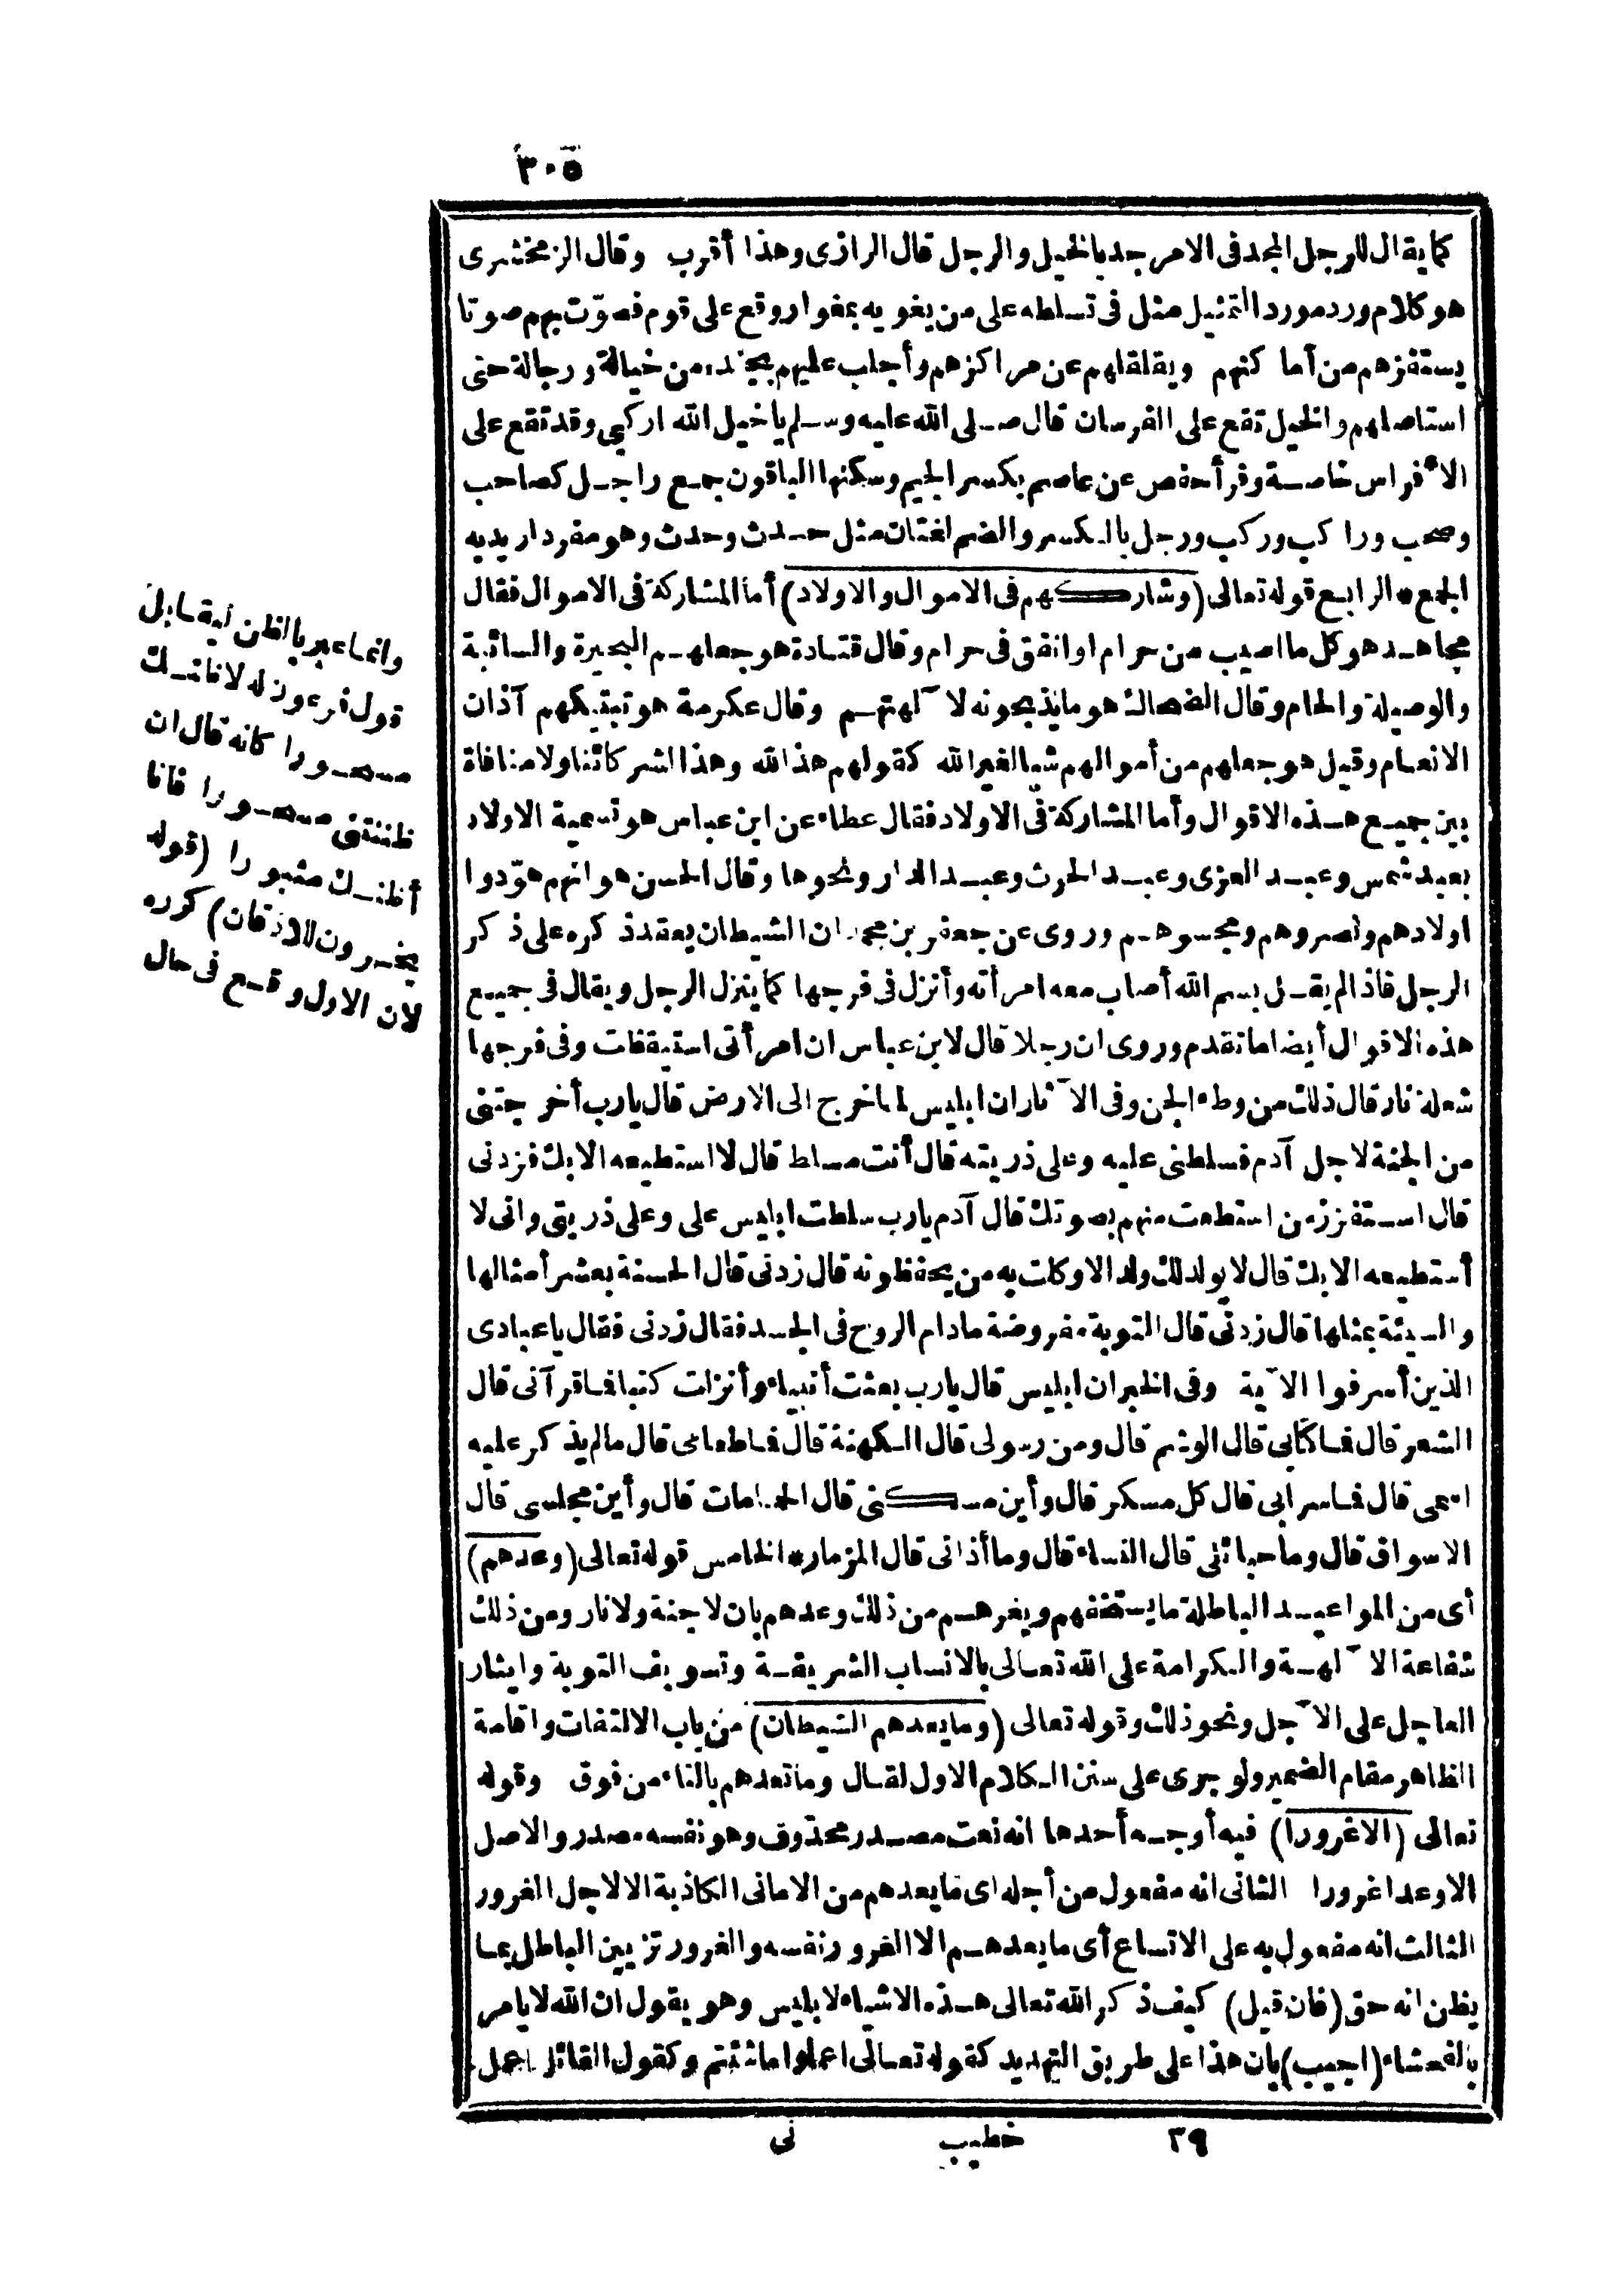 ٣٠٥
كما يقال للرجل المجد فى الامر جد بالخيل والرجل قال الرازى وهذا أقرب وقال الزمخشرى
هو كلام ورد مورد التمثيل مثل فى تسلطه على من يغويه بمغوار وقع على قوم فصوّت بهم صوتا
يستفزهم من أما كنهم ويقلقلهم عن مراكزهم وأجلب عليهم بجنده من خيالة ورجالة حتى
استاصلهم والخيل تقع على الفرسان قال صلى الله عليه وسلم يا خيل الله اركبي وقد تقع على
الافراس خاصة وقرأ حفص عن عاصم بكسر الجيم وسكنها الباقون جمع راجل كصاحب
وصحب وراكب وركب ورجل بالكسر والضم لغتان مثل حدث وحدث وهو مفرد اريد به
الجمع * الرابع قوله تعالى (وشاركهم فى الاموال والاولاد) أما المشاركة فى الاموال فقال
مجاهد هو كل ما اصيب من حرام او انفق فى حرام وقال قتادة هو جعلهم البحيرة والسائبة
والوصيلة والحام وقال الضحاك هو ما يذبحونه لآلهتهم وقال عكرمة هو تبتيكهم آذان
الانعام وقيل هو جعلهم من أموالهم شيا لغير الله كقولهم هذا لله وهذا الشركائنا ولا منافاة
بين جميع هذه الاقوال وأما المشاركة فى الاولاد فقال عطاء عن ابن عباس هو تسمية الاولاد
بعبد شمس وعبد العزى وعبد الحرث وعبد الدار ونحوها وقال الحسن هو انهم هوّدوا
اولادهم ونصروهم ومجسوهم وروى عن جعفر بن محمد ان الشيطان يعقد ذكره على ذكر
الرجل فاذا لم يقل بسم الله أصاب معه امرأته وأنزل فى فرجها كما ينزل الرجل ويقال فى جميع
هذه الاقوال أيضا ما تقدم وروى ان رجلا قال لابن عباس ان امرأتى استيقظت وفى فرجها
شعلة نار قال ذلك من وطء الجن وفى الآثار ان ابليس لما خرج الى الارض قال يارب أخرجتنى
من الجنة لاجل آدم فسلطنى عليه وعلى ذريته قال أنت مسلط قال لا استطيعه الا بك فزدنى
قال استفزز من استطعت منهم بصوتك قال آدم يارب سلطت ابليس على وعلى ذريتى وانى لا
أستطيعه الا بك قال لا يولد لك ولد الا وكلت به من يحفظونه قال زدنى قال الحسنة بعشر أمثالها
والسيئة بمثلها قال زدنى قال التوبة مفروضة مادام الروح فى الجسد فقال زدنى فقال يا عبادى
الذين أسرفوا الآية وفى الخبر ان ابليس قال يارب بعثت أنبياء وأنزلت كتبا فما قرآنى قال
الشعر قال فما كتابى قال الوشم قال ومن رسولى قال الكهنة قال فما طعامى قال مالم يذكر عليه
اسمى قال فما شرابى قال كل مسكر قال وأين مسكنى قال الحمامات قال وأين مجلسى قال
الاسواق قال وما حبائلى قال النساء قال وما أذانى قال المزمار * الخامس قوله تعالى (وعدهم)
أى من المواعيد الباطلة ما يستخفهم ويغرهم من ذلك وعدهم بان لا جنة ولا نار ومن ذلك
شفاعة الآلهة والكرامة على الله تعالى بالانساب الشريفة وتسويف التوبة وايثار
العاجل على الآجل ونحو ذلك وقوله تعالى (وما يعدهم الشيطان) من باب الالتفات واقامة
الظاهر مقام الضمير ولو جرى على سنن الكلام الاول لقال وما تعدهم بالتاء من فوق وقوله
تعالى (الا غرورا) فيه أوجه أحدها انه نعت مصدر محذوف وهو نفسه مصدر والاصل
الا وعدا غرورا الثانى انه مفعول من أجله اى ما يعدهم من الامانى الكاذبة الا لاجل الغرور
الثالث انه مفعول به على الاتساع أى ما يعدهم الا الغرور نفسه والغرور تزيين الباطل بما
يظن انه حق (فان قيل) كيف ذكر الله تعالى هذه الاشياء لابليس وهو يقول ان الله لا يامر
بالفحشاء (اجيب) بان هذا على طريق التهديد كقوله تعالى اعملوا ما شئتم وكقول القائل اعمل
٣٩ خطيب نى
وانما عبر بالظن ليقابل
قول فرعون له لاظنك
مسحورا كانه قال ان
ظننتنى مسحورا فانا
أظنك مثبورا (قوله
يخرون للاذقان) كرره
لان الاول وقع فى حال